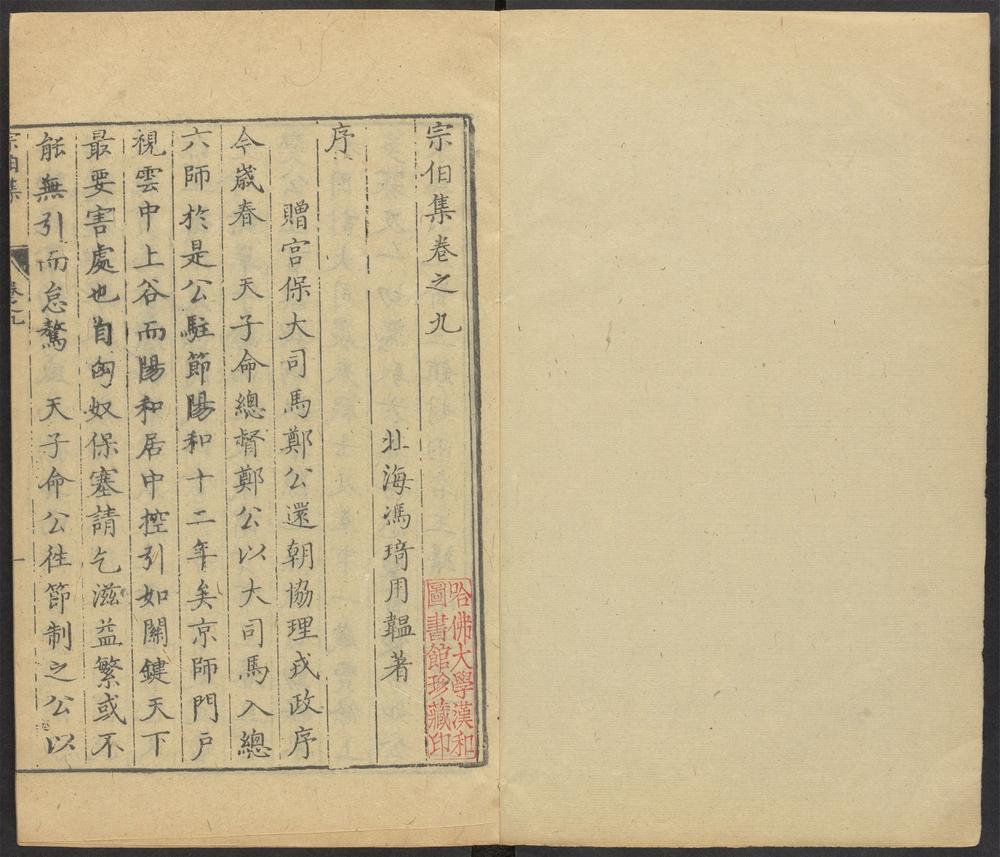 宗伯集卷之九
北海馮琦用韞著
序
贈宮保大司馬鄭公還朝協理戎政序
今歲春天子命總督鄭公以大司馬入總
六師於是公駐節陽和十二年矣京師門戶
視雲中上谷而陽和居中控引如關鍵天下
最要害處也自匈奴保塞請乞滋益繁或不
能無引而怠驁天子命公往節制之公以
宗伯集
卷之九
一
哈佛大學漢和
圖書館珍藏印